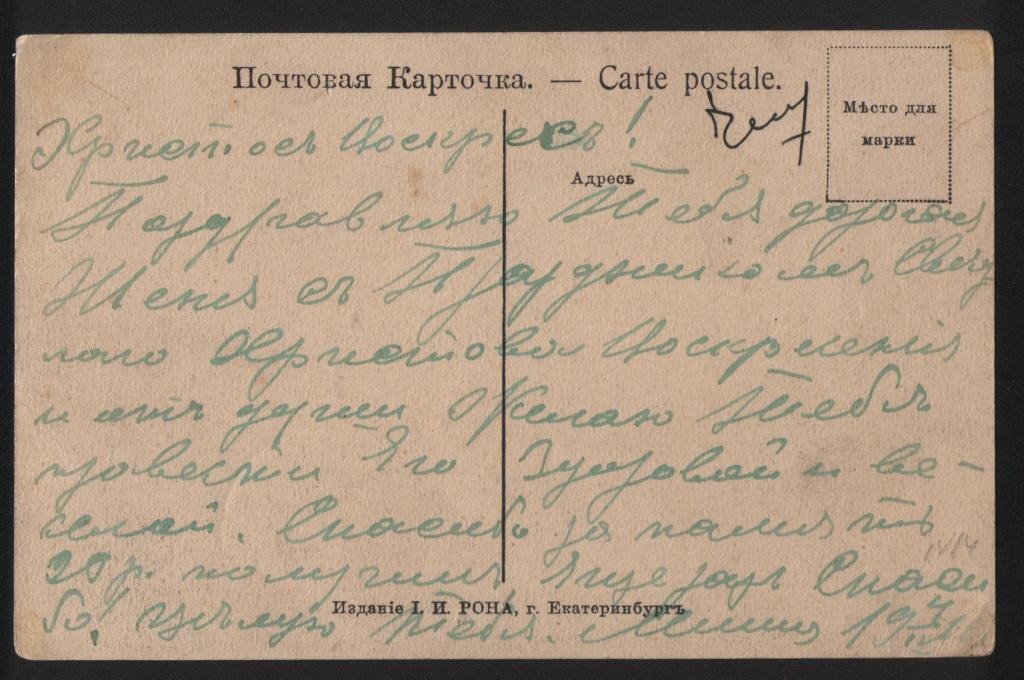 Почтовая Карточка. — Carte postale.
Мѣсто для
марки
Христосъ Воскресъ!
Адресъ
Поздравляю Тебя дорогая
Женя съ Праздникомъ Свѣт
лаго Христова Воскресенія
и отъ души Желаю Тебѣ
провести Его Здоровой и ве-
селой. Спасибо за память
20 р. получилъ Еще разъ Спаси
бо, цѣлую Тебя. 19
Изданіе І. И. РОНА, г. Екатеринбургъ